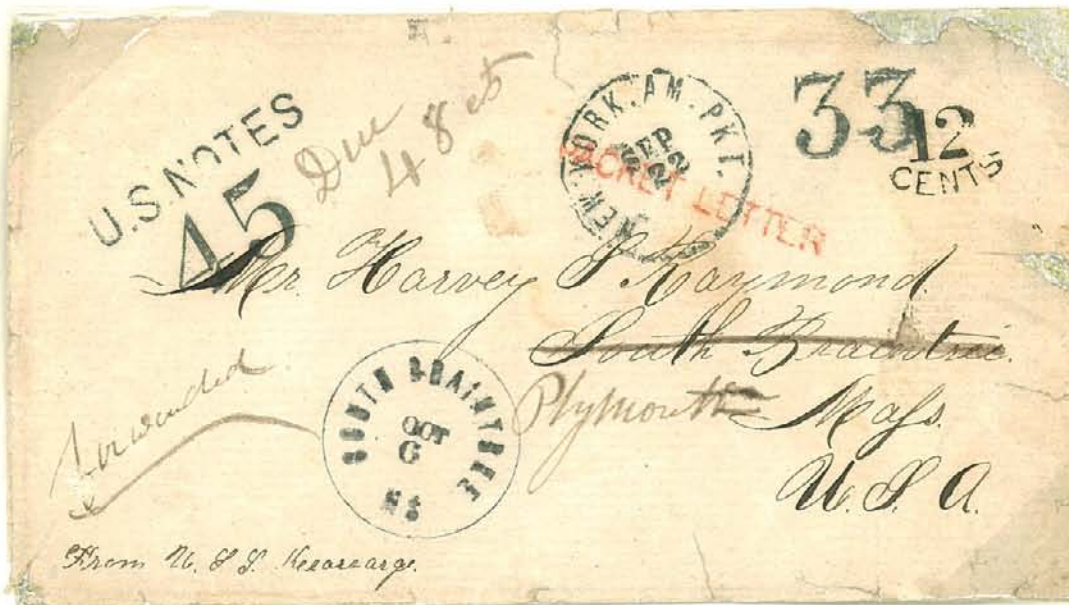 U.S. NOTES
45
Due
48 cts
NEW YORK. AM. PKT.
SEP
22
PACKET LETTER
33
12
CENTS
Mr. Harvey S Raymond.
South Braintree.
Plymouth Mass.
U. S. A.
Forwarded
SOUTH BRAINTREE
OCT
6
MS
From U. S. S. Kearsarge.